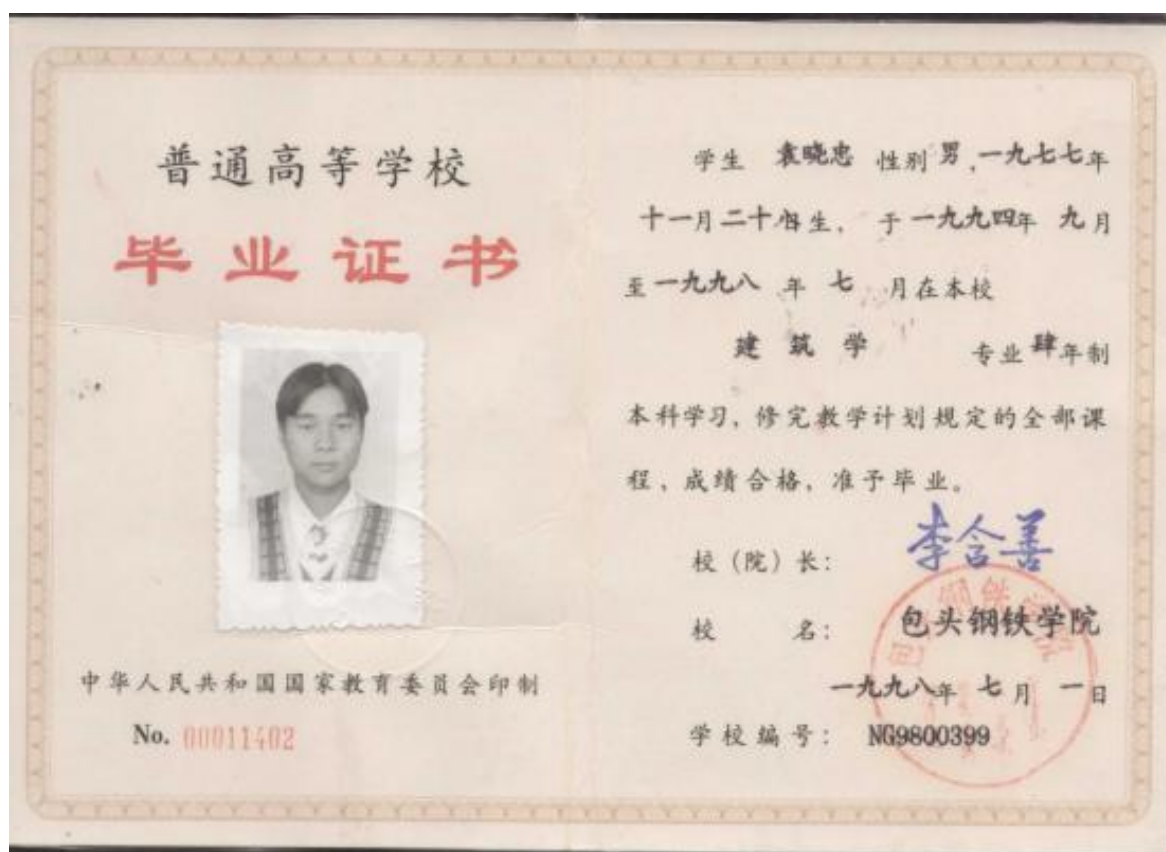 普通高等学校
毕业证书
中华人民共和国国家教育委员会印制
No. 00011402
学生 袁晓忠 性别 男,一九七七年
十一月二十 日生, 于一九九四年 九月
至一九九八 年 七 月在本校
建 筑 学 专业肆年制
本科学习, 修完教学计划规定的全部课
程, 成绩合格, 准予毕业。
校(院)长: 李含善
校 名: 包头钢铁学院
一九九八年 七月 一日
学校编号: NG9800399